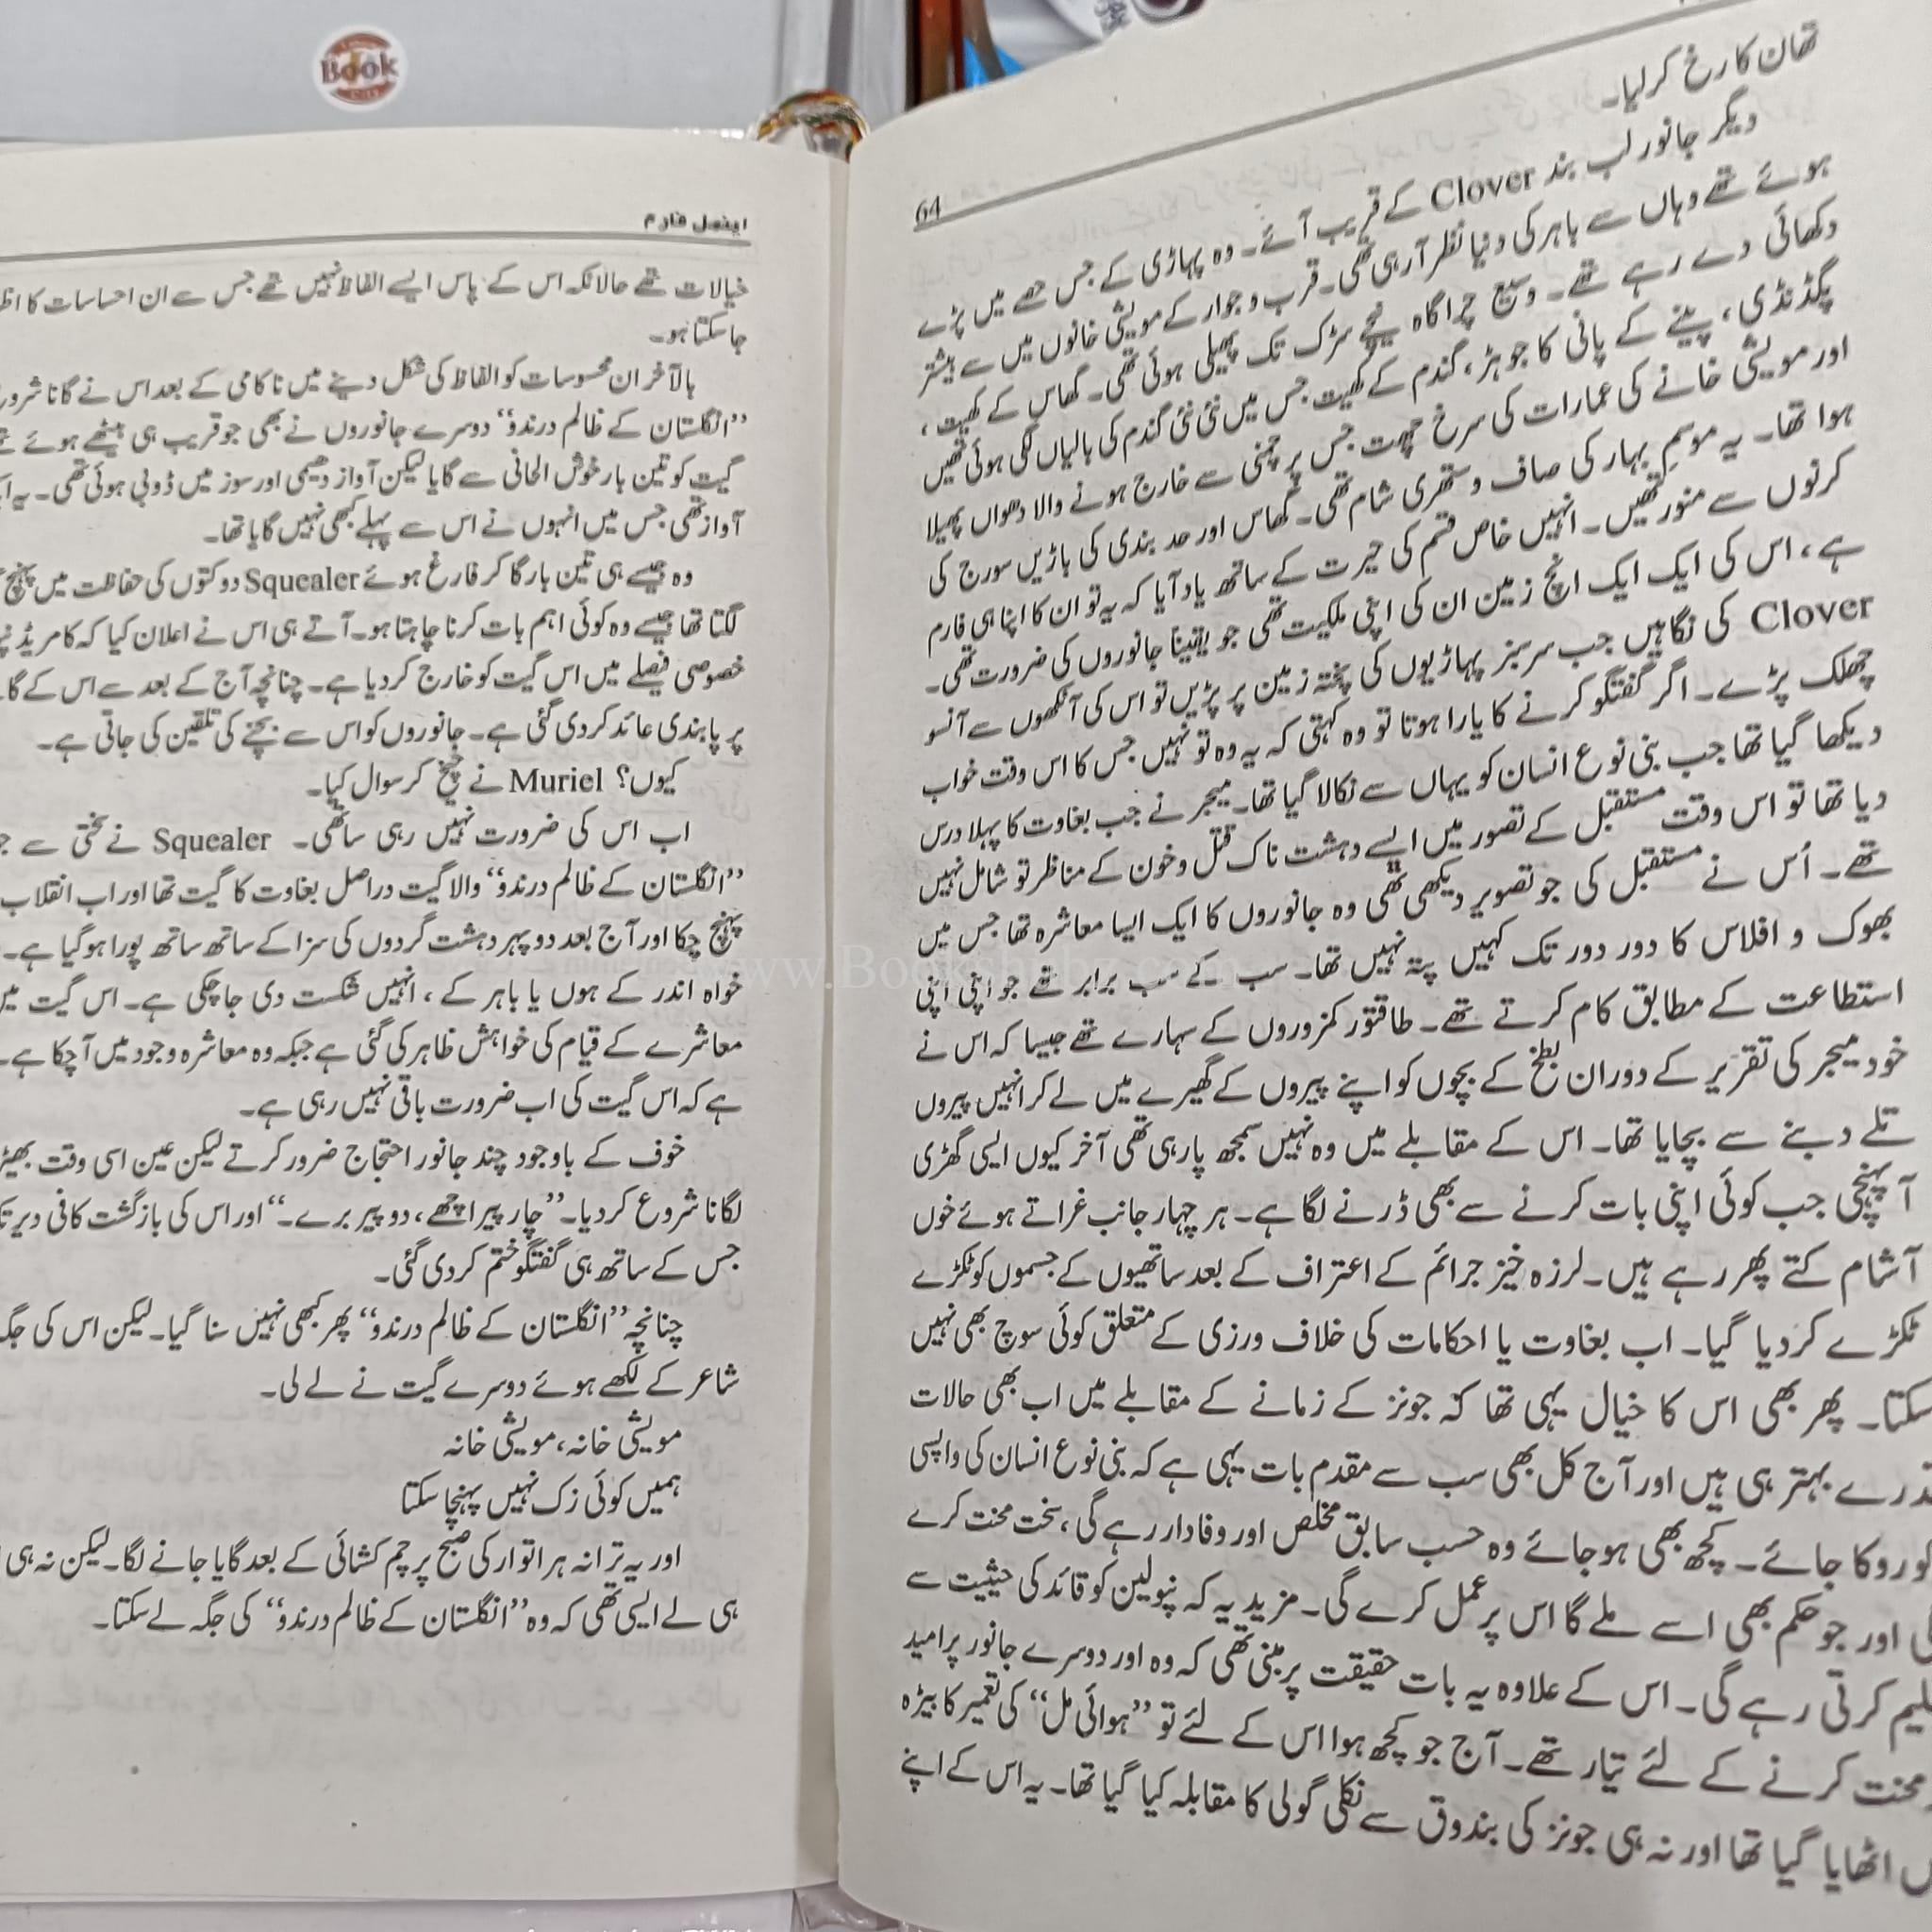 Book
64
تھان کا رخ کر لیا۔
دیگر جانور لب بند Clover کے قریب آئے۔ وہ پہاڑی کے جس حصے میں پڑے
ہوئے تھے وہاں سے باہر کی دنیا نظر آ رہی تھی۔ قرب و جوار کے مویشی خانوں میں سے بیشتر
دکھائی دے رہے تھے۔ وسیع چراگاہ نیچے سڑک تک پھیلی ہوئی تھی۔ گھاس کے کھیت،
پگڈنڈی، پینے کے پانی کا جوہڑ، گندم کے کھیت جس میں نئی نئی گندم کی بالیاں لگی ہوئی تھیں
اور مویشی خانے کی عمارات کی سرخ چھت جس پر چمنی سے خارج ہونے والا دھواں پھیلا
ہوا تھا۔ یہ موسمِ بہار کی صاف و ستھری شام تھی۔ گھاس اور حد بندی کی باڑیں سورج کی
کرنوں سے منور تھیں۔ انہیں خاص قسم کی حیرت کے ساتھ یاد آیا کہ یہ تو ان کا اپنا ہی فارم
ہے، اس کی ایک ایک انچ زمین ان کی اپنی ملکیت تھی جو یقیناً جانوروں کی ضرورت تھی۔
Clover کی نگاہیں جب سرسبز پہاڑیوں کی پختہ زمین پر پڑیں تو اس کی آنکھوں سے آنسو
چھلک پڑے۔ اگر گفتگو کرنے کا یارا ہوتا تو وہ کہتی کہ یہ وہ تو نہیں جس کا اس وقت خواب
دیکھا گیا تھا جب بنی نوع انسان کو یہاں سے نکالا گیا تھا۔ میجر نے جب بغاوت کا پہلا درس
دیا تھا تو اس وقت مستقبل کے تصور میں ایسے دہشت ناک قتل و خون کے مناظر تو شامل نہیں
تھے۔ اُس نے مستقبل کی جو تصویر دیکھی تھی وہ جانوروں کا ایک ایسا معاشرہ تھا جس میں
بھوک و افلاس کا دور دور تک کہیں پتہ نہیں تھا۔ سب کے سب برابر تھے جو اپنی اپنی
استطاعت کے مطابق کام کرتے تھے۔ طاقتور کمزوروں کے سہارے تھے جیسا کہ اس نے
خود میجر کی تقریر کے دوران بطخ کے بچوں کو اپنے پیروں کے گھیرے میں لے کر انہیں پیروں
تلے دبنے سے بچایا تھا۔ اس کے مقابلے میں وہ نہیں سمجھ پا رہی تھی آخر کیوں ایسی گھڑی
آ پہنچی جب کوئی اپنی بات کرنے سے بھی ڈرنے لگا ہے۔ ہر چہار جانب غراتے ہوئے خوں
آشام کتے پھر رہے ہیں۔ لرزہ خیز جرائم کے اعتراف کے بعد ساتھیوں کے جسموں کو ٹکڑے
ٹکڑے کر دیا گیا۔ اب بغاوت یا احکامات کی خلاف ورزی کے متعلق کوئی سوچ بھی نہیں
سکتا۔ پھر بھی اس کا خیال یہی تھا کہ جونز کے زمانے کے مقابلے میں اب بھی حالات
قدرے بہتر ہی ہیں اور آج کل بھی سب سے مقدم بات یہی ہے کہ بنی نوع انسان کی واپسی
کو روکا جائے۔ کچھ بھی ہو جائے وہ حسب سابق مخلص اور وفادار رہے گی، سخت محنت کرے
اور جو حکم بھی اسے ملے گا اس پر عمل کرے گی۔ مزید یہ کہ نپولین کو قائد کی حیثیت سے
کرتی رہے گی۔ اس کے علاوہ یہ بات حقیقت پر مبنی تھی کہ وہ اور دوسرے جانور پرامید
محنت کرنے کے لئے تیار تھے۔ آج جو کچھ ہوا اس کے لئے تو ”ہوائی مل“ کی تعمیر کا بیڑہ
اٹھایا گیا تھا اور نہ ہی جونز کی بندوق سے نکلی گولی کا مقابلہ کیا گیا تھا۔ یہ اس کے اپنے
اینمل فارم
خیالات تھے حالانکہ اس کے پاس ایسے الفاظ نہیں تھے جس سے ان احساسات کا
جا سکتا ہو۔
بالآخر ان محسوسات کو الفاظ کی شکل دینے میں ناکامی کے بعد اس نے گانا
”انگلستان کے ظالم درندو“ دوسرے جانوروں نے بھی جو قریب ہی بیٹھے ہوئے
گیت کو تین بار خوش الحانی سے گایا لیکن آواز دھیمی اور سوز میں ڈوبی ہوئی تھی۔ یہ
آواز تھی جس میں انہوں نے اس سے پہلے کبھی نہیں گایا تھا۔
وہ جیسے ہی تین بار گا کر فارغ ہوئے Squealer دو کتوں کی حفاظت میں پہنچ
لگتا تھا جیسے وہ کوئی اہم بات کرنا چاہتا ہو۔ آتے ہی اس نے اعلان کیا کہ کامریڈ
خصوصی فیصلے میں اس گیت کو خارج کر دیا ہے۔ چنانچہ آج کے بعد سے اس کے
پر پابندی عائد کر دی گئی ہے۔ جانوروں کو اس سے بچنے کی تلقین کی جاتی ہے۔
کیوں؟ Muriel نے چیخ کر سوال کیا۔
اب اس کی ضرورت نہیں رہی ساتھی۔ Squealer نے سختی سے
”انگلستان کے ظالم درندو“ والا گیت دراصل بغاوت کا گیت تھا اور اب انقلاب
پہنچ چکا اور آج بعد دوپہر دہشت گردوں کی سزا کے ساتھ ساتھ پورا ہو گیا ہے۔
خواہ اندر کے ہوں یا باہر کے، انہیں شکست دی جا چکی ہے۔ اس گیت
معاشرے کے قیام کی خواہش ظاہر کی گئی ہے جبکہ وہ معاشرہ وجود میں آ چکا ہے۔
ہے کہ اس گیت کی اب ضرورت باقی نہیں رہی ہے۔
خوف کے باوجود چند جانور احتجاج ضرور کرتے لیکن عین اسی وقت
لگانا شروع کر دیا۔ ”چار پیر اچھے، دو پیر برے۔“ اور اس کی بازگشت کافی دیر
جس کے ساتھ ہی گفتگو ختم کر دی گئی۔
چنانچہ ”انگلستان کے ظالم درندو“ پھر کبھی نہیں سنا گیا۔ لیکن اس کی
شاعر کے لکھے ہوئے دوسرے گیت نے لے لی۔
مویشی خانہ، مویشی خانہ
ہمیں کوئی زک نہیں پہنچا سکتا
اور یہ ترانہ ہر اتوار کی صبح پرچم کشائی کے بعد گایا جانے لگا۔ لیکن نہ ہی
ہی لے ایسی تھی کہ وہ ”انگلستان کے ظالم درندو“ کی جگہ لے سکتا۔